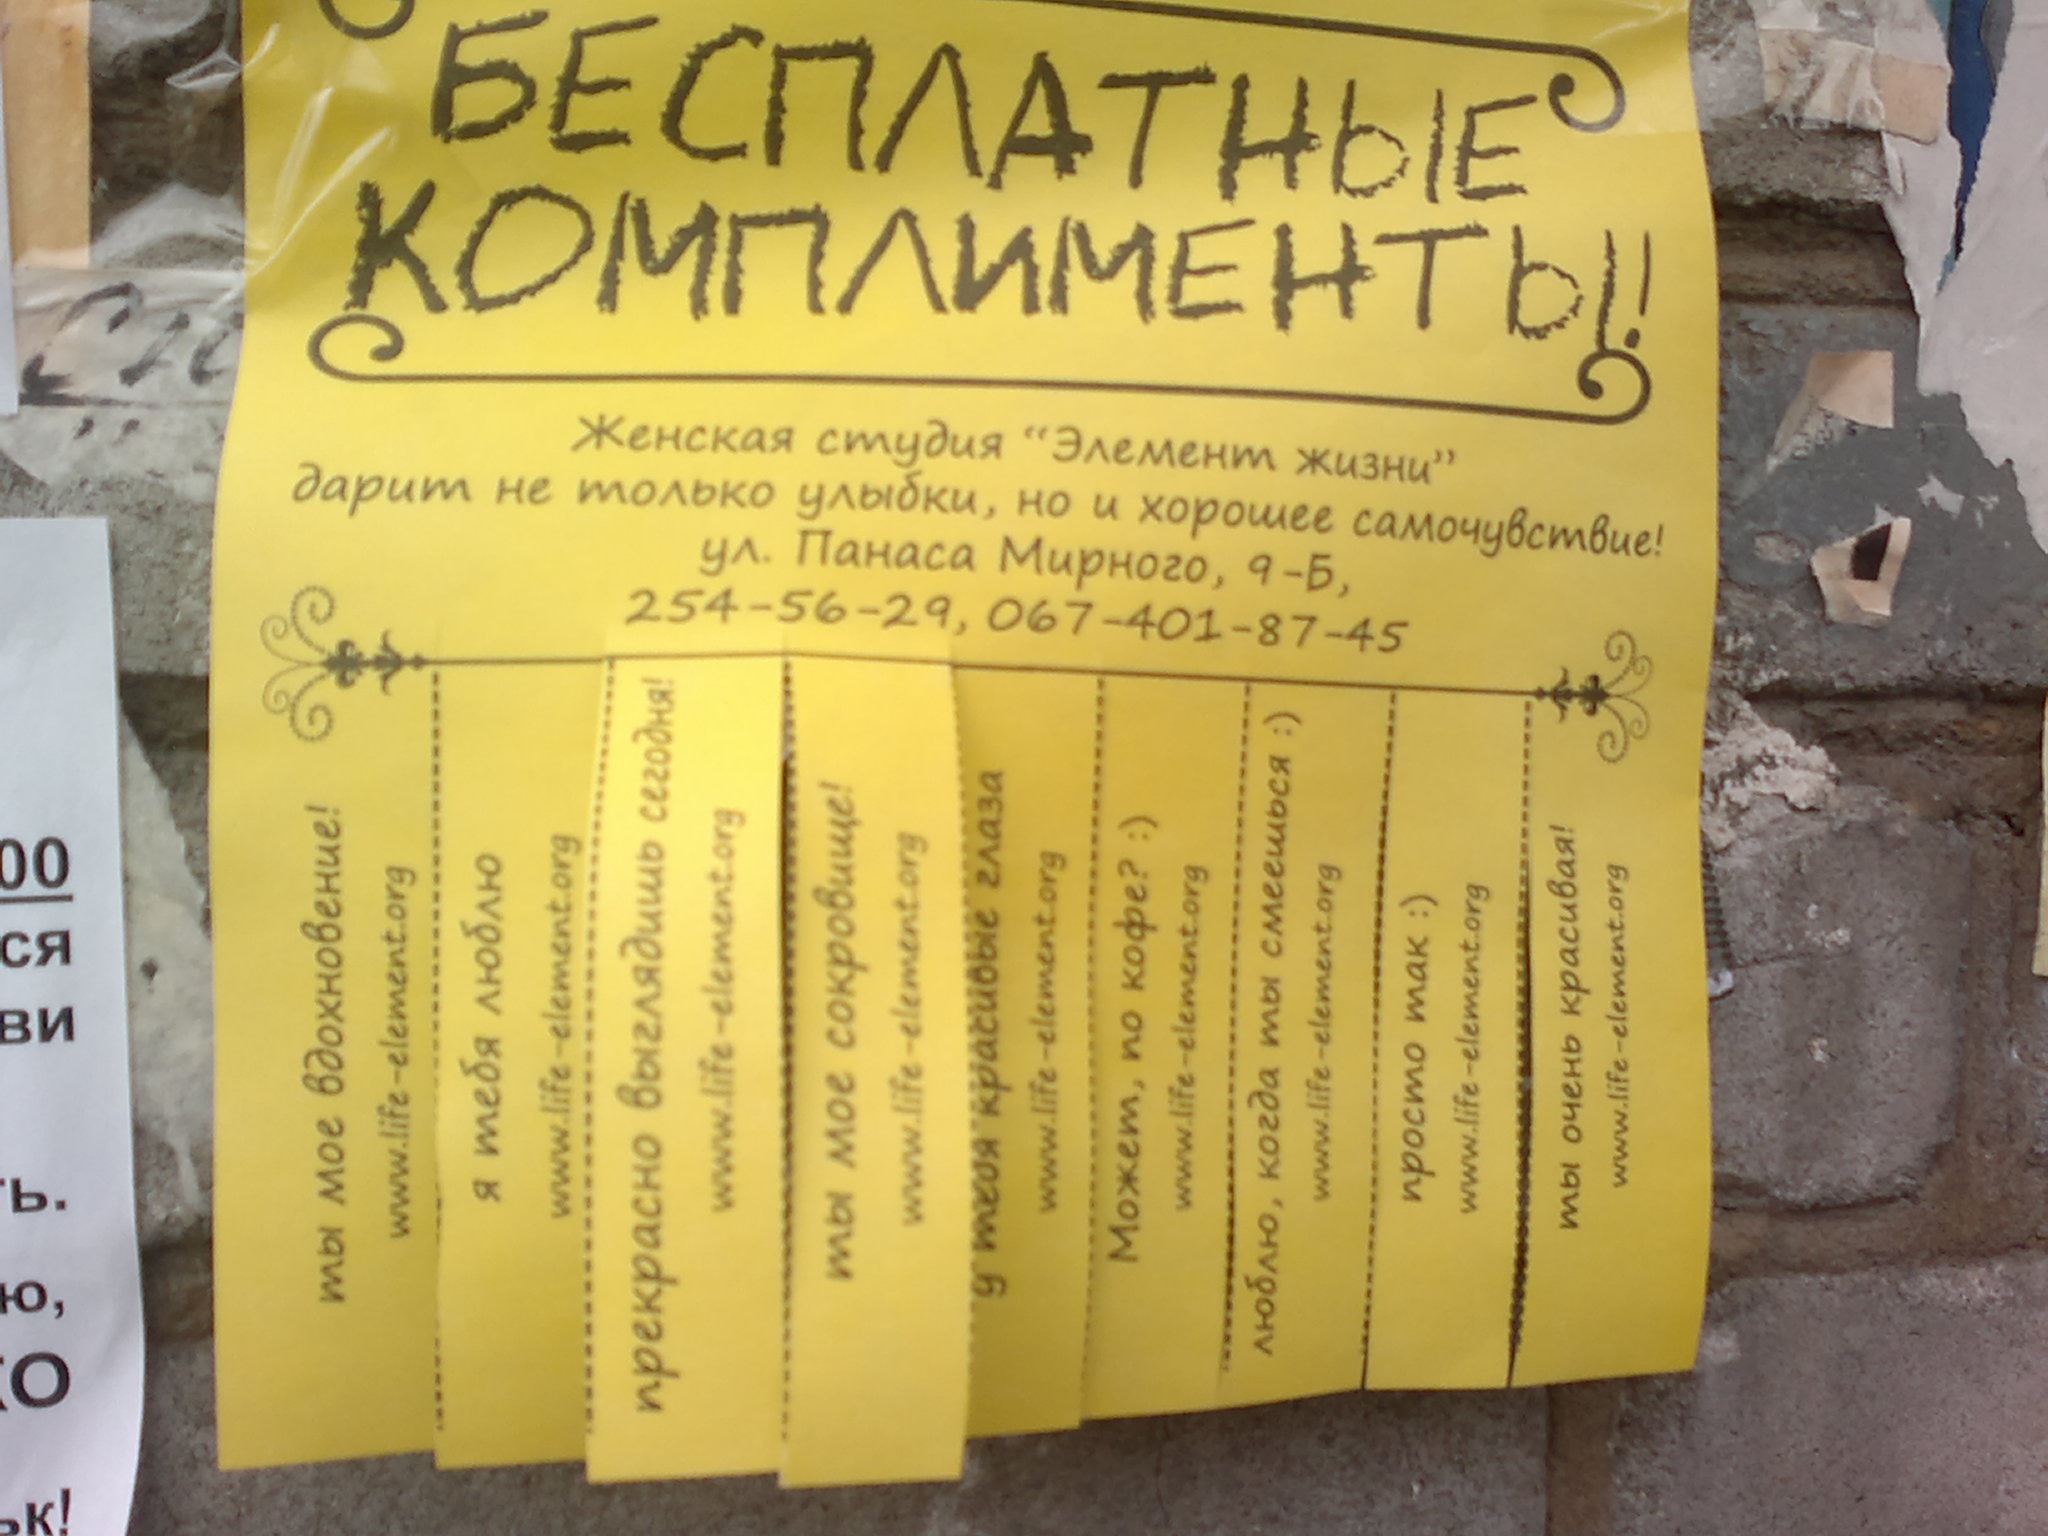 БЕСПЛАТНЫЕ
КОМПЛИМЕНТЫ!
Женская студия “Элемент жизни”
дарит не только улыбки, но и хорошее самочувствие!
ул. Панаса Мирного, 9-Б,
254-56-29, 067-401-87-45
ты мое вдохновение!
www.life-element.org
я тебя люблю
www.life-element.org
прекрасно выглядишь сегодня!
www.life-element.org
ты мое сокровище!
www.life-element.org
у тебя красивые глаза
www.life-element.org
Может, по кофе? :)
www.life-element.org
люблю, когда ты смеешься :)
www.life-element.org
просто так :)
www.life-element.org
ты очень красивая!
www.life-element.org
00
ся
ви
ть.
ю,
ко
ьк!